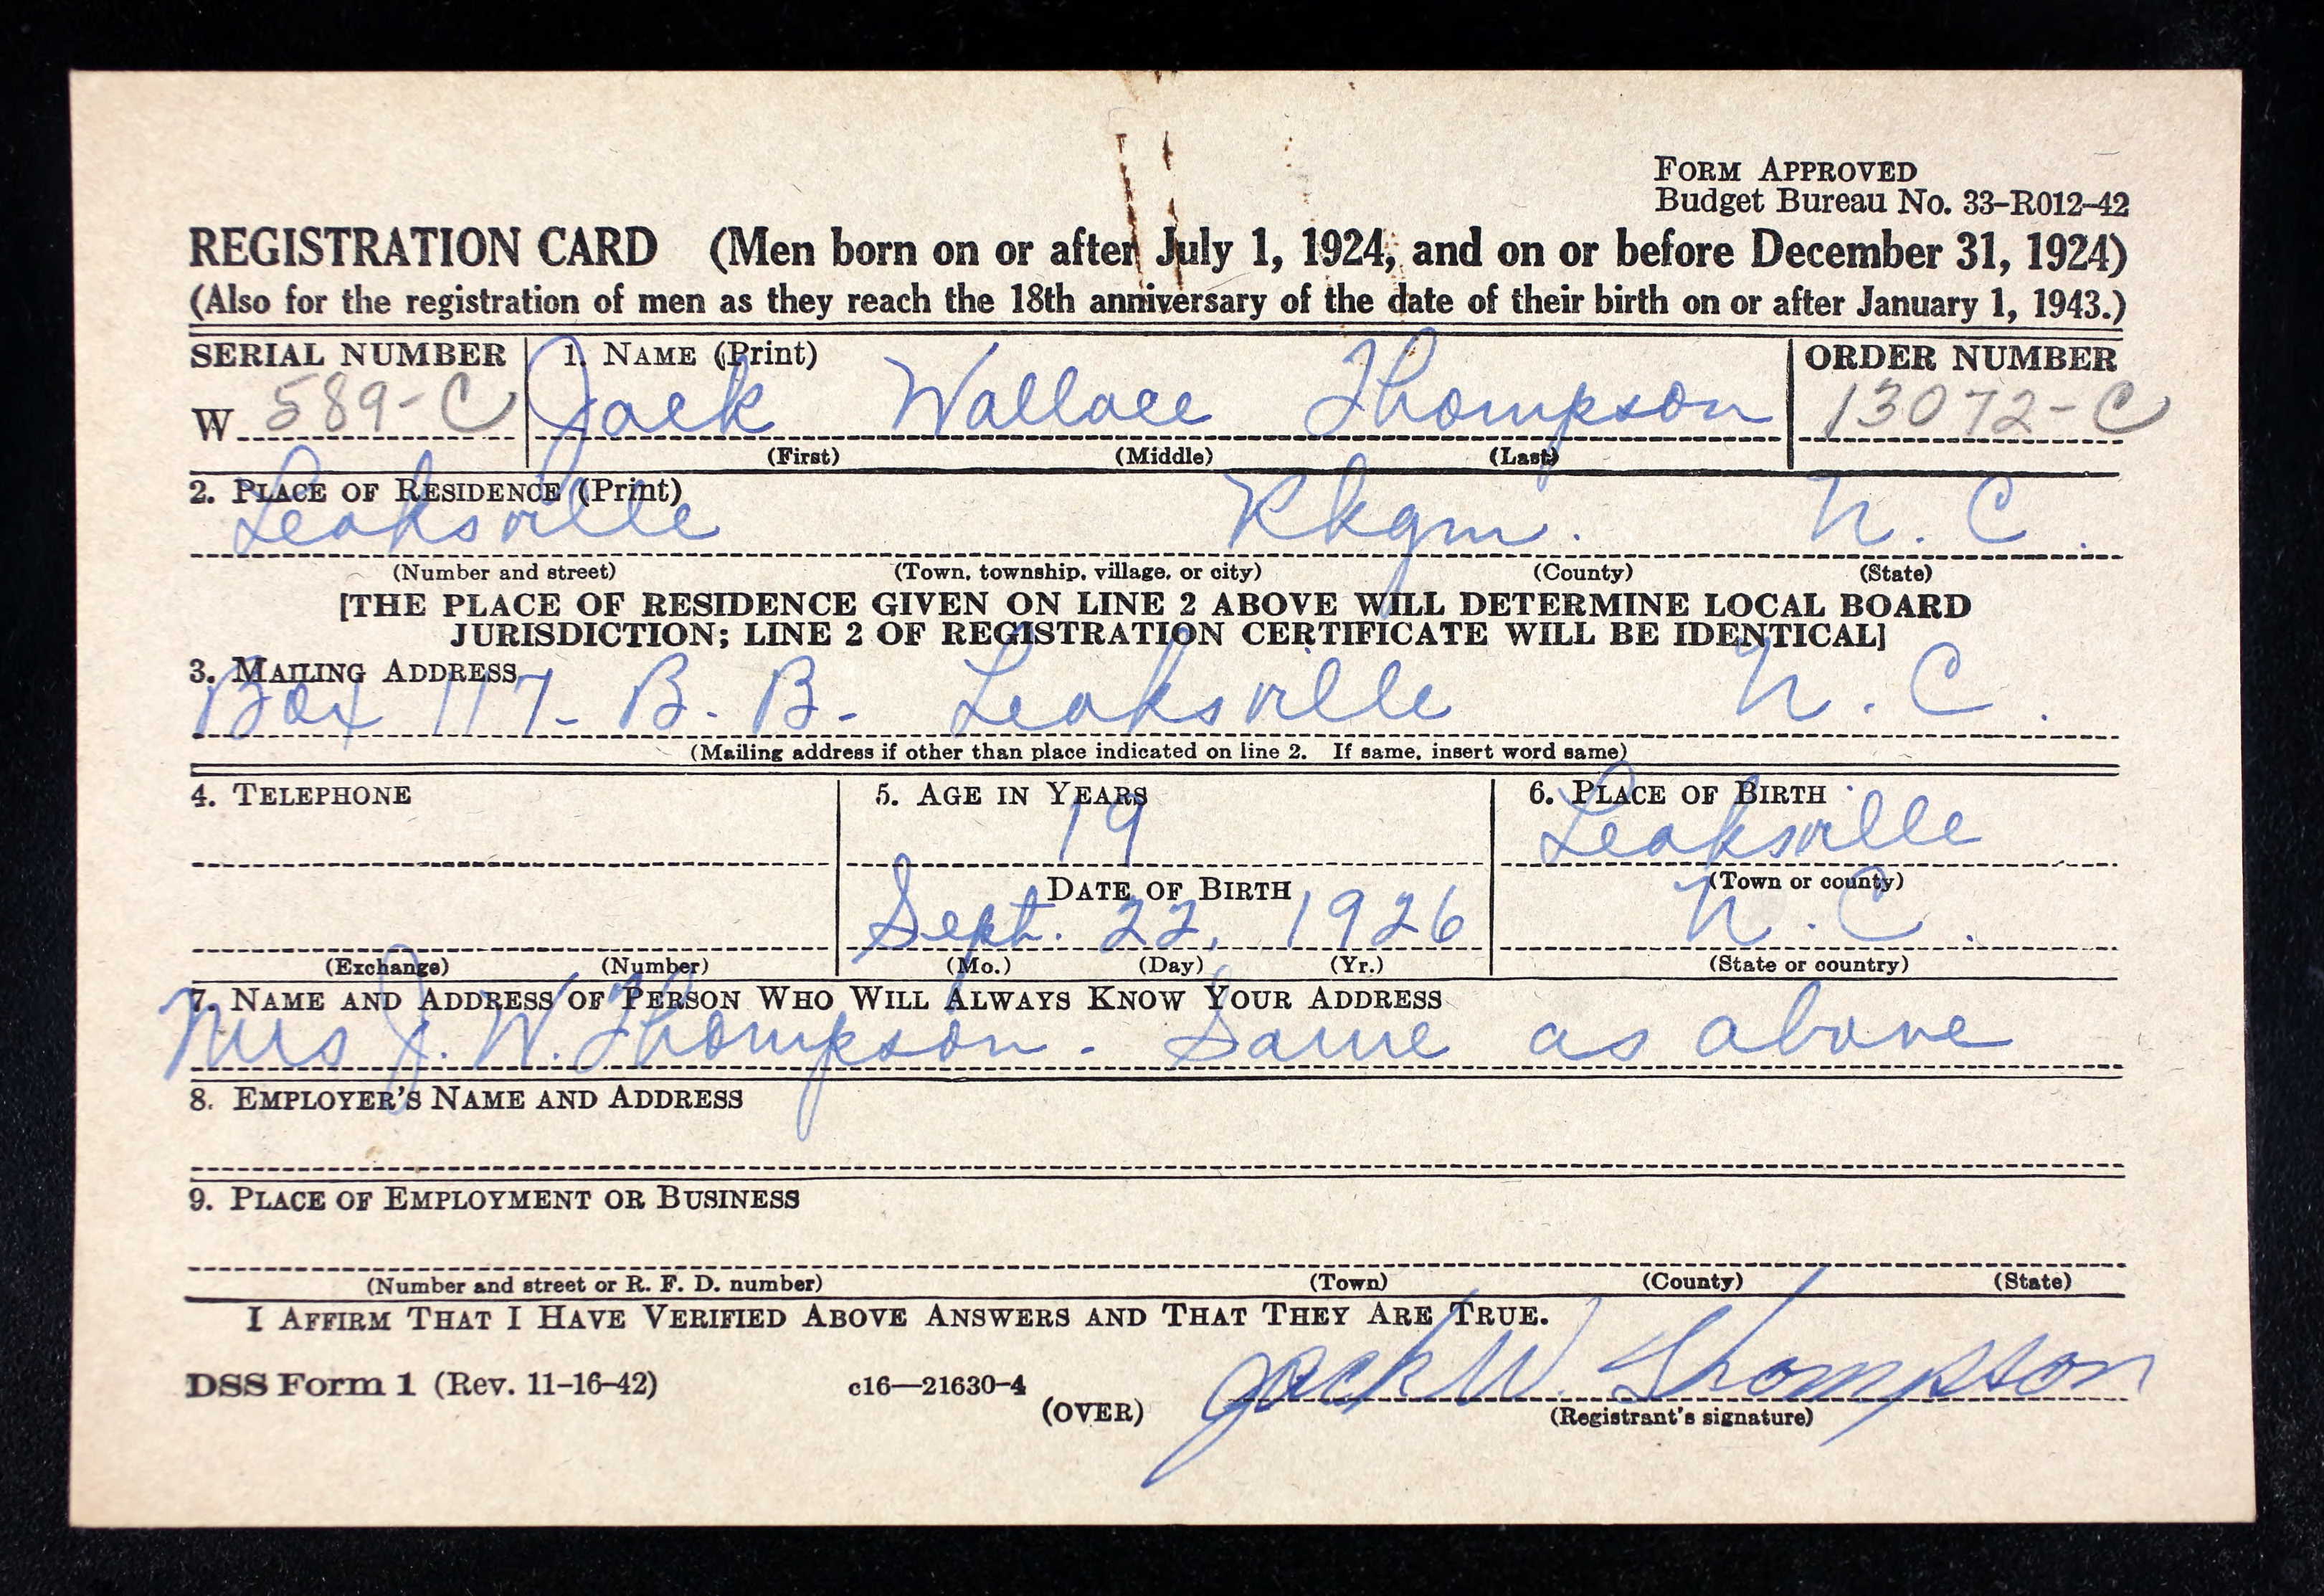 FORM APPROVED
Budget Bureau No. 33–R012–42
REGISTRATION CARD (Men born on or after July 1, 1924, and on or before December 31, 1924)
(Also for the registration of men as they reach the 18th anniversary of the date of their birth on or after January 1, 1943.)
SERIAL NUMBER 1. NAME (Print) ORDER NUMBER
W 589-C Jack Wallace Thompson 13072-C
(First) (Middle) (Last)
2. PLACE OF RESIDENCE (Print)
Leaksville Rkgm. N. C.
(Number and street) (Town, township, village, or city) (County) (State)
[THE PLACE OF RESIDENCE GIVEN ON LINE 2 ABOVE WILL DETERMINE LOCAL BOARD
JURISDICTION; LINE 2 OF REGISTRATION CERTIFICATE WILL BE IDENTICAL]
3. MAILING ADDRESS
Box 117- B. B- Leaksville N. C.
(Mailing address if other than place indicated on line 2. If same, insert word same)
4. TELEPHONE 5. AGE IN YEARS 6. PLACE OF BIRTH
19 Leaksville
DATE OF BIRTH (Town or county)
Sept. 22, 1926 N. C.
(Exchange) (Number) (Mo.) (Day) (Yr.) (State or country)
7. NAME AND ADDRESS OF PERSON WHO WILL ALWAYS KNOW YOUR ADDRESS
Mrs J. W. Thompson - Same as above
8. EMPLOYER'S NAME AND ADDRESS
9. PLACE OF EMPLOYMENT OR BUSINESS
(Number and street or R. F. D. number) (Town) (County) (State)
I AFFIRM THAT I HAVE VERIFIED ABOVE ANSWERS AND THAT THEY ARE TRUE.
DSS Form 1 (Rev. 11–16–42) c16—21630-4 Jack W. Thompson
(OVER) (Registrant's signature)